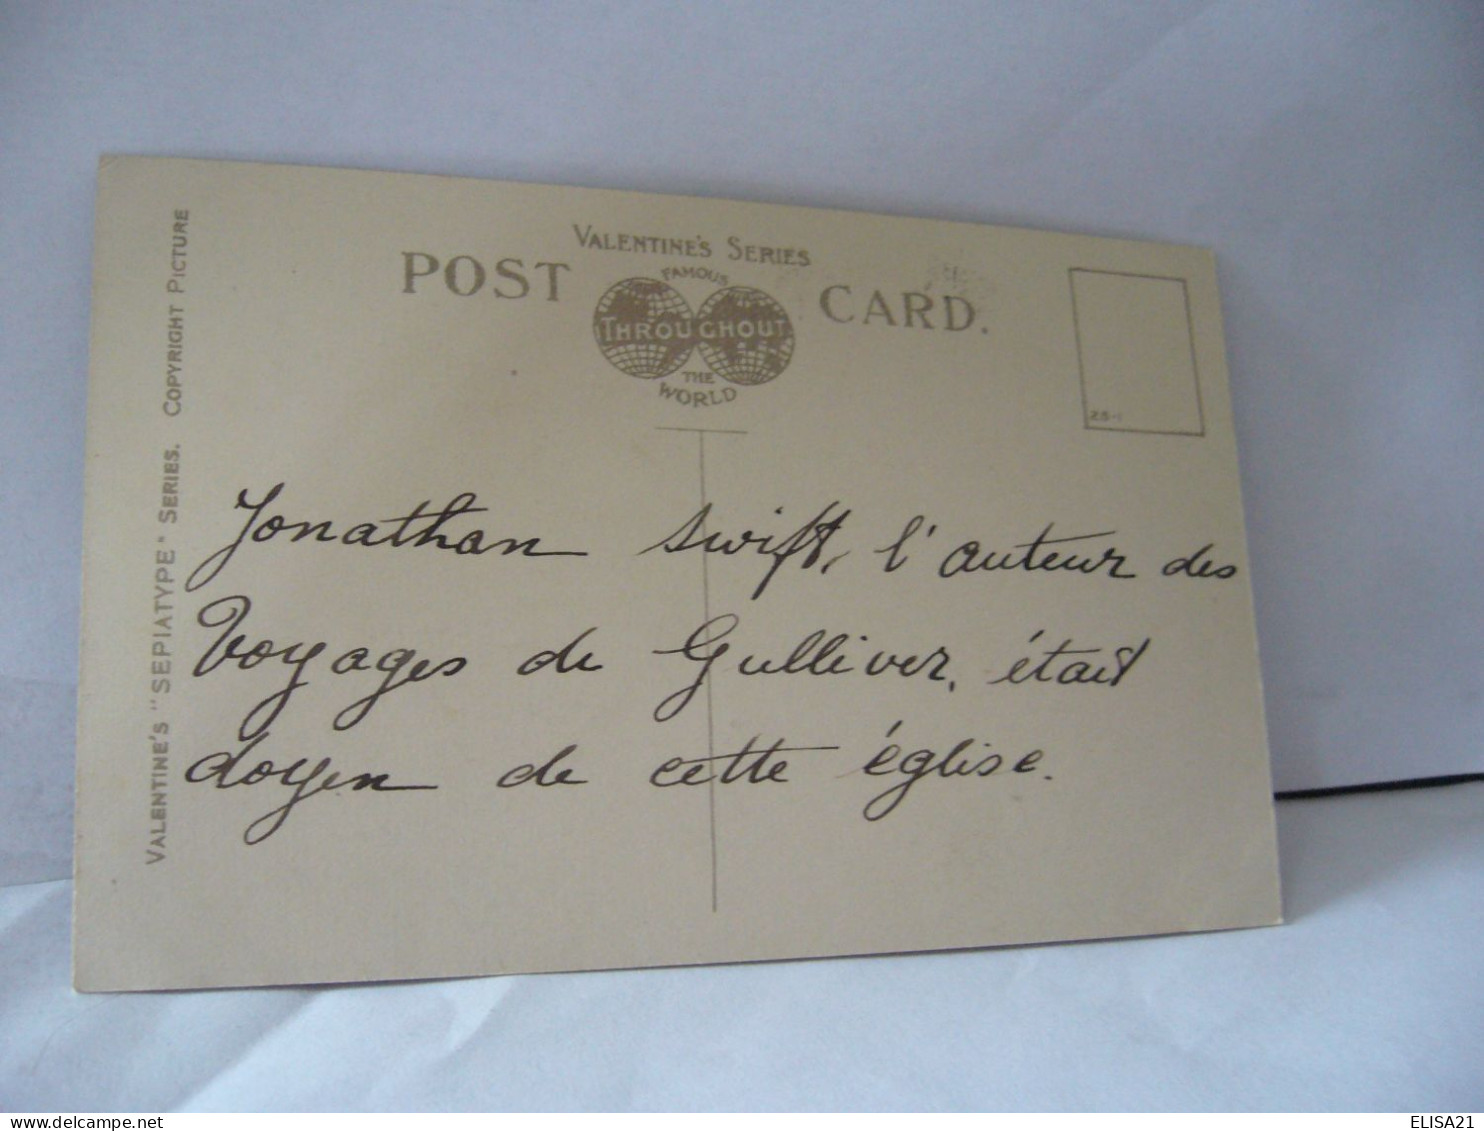 VALENTINE'S SERIES
POST CARD.
FAMOUS
THROUGHOUT
THE
WORLD
VALENTINE'S "SEPIATYPE" SERIES. COPYRIGHT PICTURE
Jonathan Swift, l'auteur des
Voyages de Gulliver, était
doyen de cette église.
ELISA21